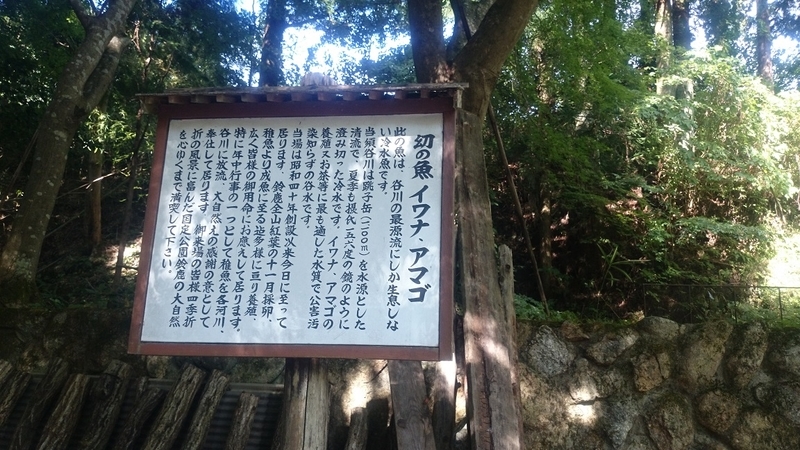 幻の魚 イワナ・アマゴ
此の魚は、谷川の最源流にしか生息しな
い冷水魚です。
当須谷川は銚子岳(一一〇〇m)を水源とした
清流で、夏季も摂氏一五六度の鏡のように
澄み切った冷水です。イワナ、アマゴの
養殖又お茶等に最も適した水質で公害汚
染知らずの谷水です。
当場は昭和四十年創設以来今日に至って
居ります。鈴鹿全山紅葉の十一月採卵、
稚魚より成魚に至る迄多様に亘り養殖、
広く皆様の御用命にお應えして居ります。
特に年中行事の一つとして稚魚を各河川、
谷川に放流、大自然えの感謝の意として
奉仕して居ります。御来場の皆様四季折
折の風景に富んだ国定公園鈴鹿の大自然
を心ゆくまで満喫して下さい。